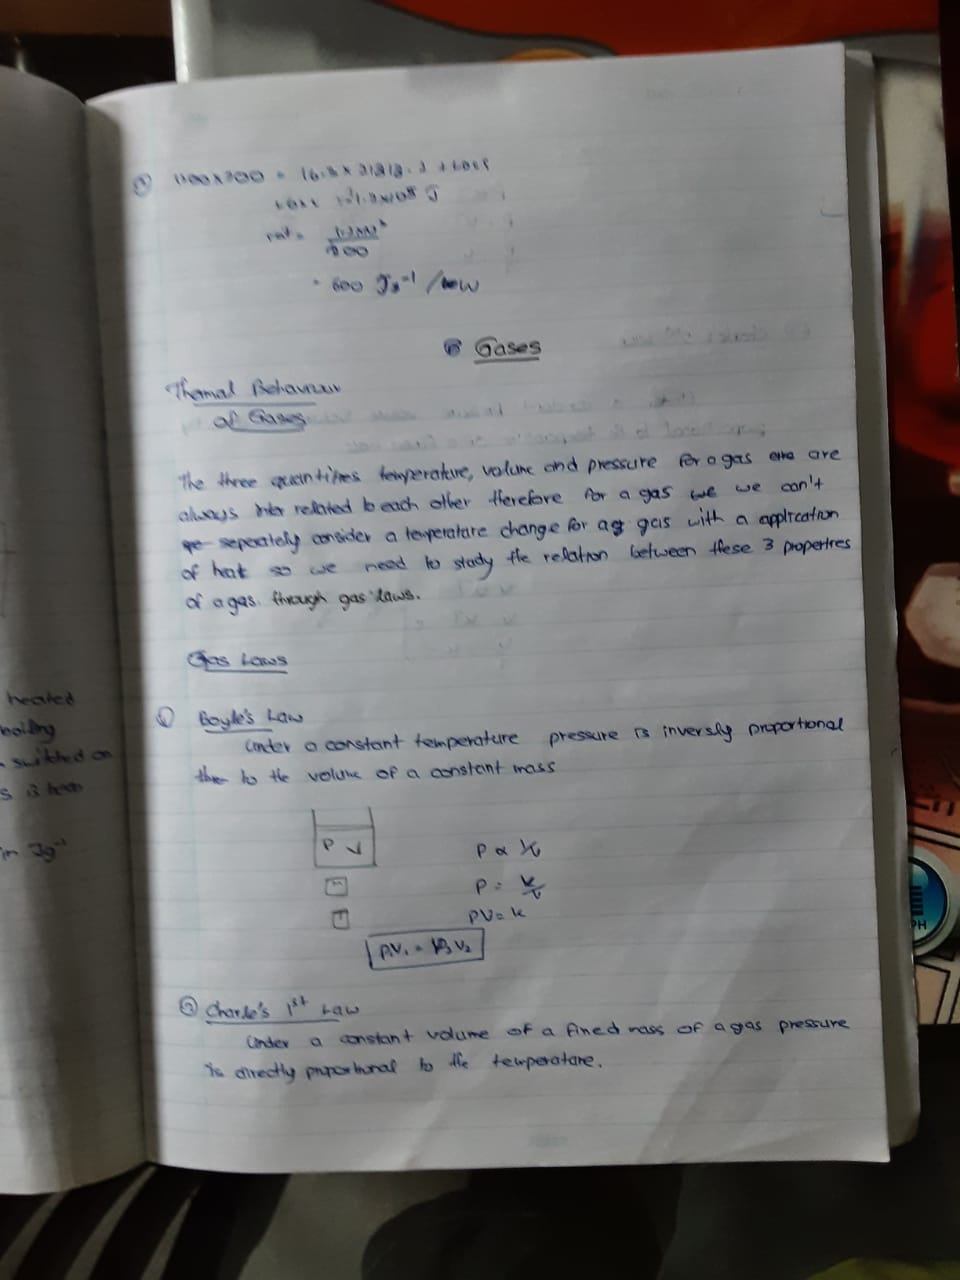 heated
boiling
switched on
in Jg⁻¹
rat =
= 600 Jg⁻¹ /
Gases
Thamal Behaviour
of Gases
The three quantities temperature, volume and pressure for a gas are
always inter rellated to each other therefore for a gas we we can't
seperately consider a temperature change for gas with a application
of heat so we need to study the relation between these 3 propertres
of a gas. through gas laws.
Gas Laws
① Boyle's Law
Under a constant temperature pressure is inversly proportional
to the volume of a constant mass
P V
P α 1/V
P = k/V
PV = k
P₁V₁ = P₂V₂
② Charle's 1st Law
Under a constant volume of a fined mass of a gas pressure
is directly proportional to the temperature.
PH